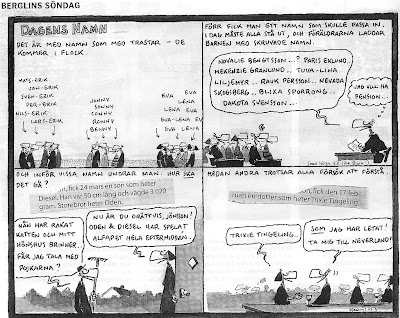 BERGLINS SÖNDAG
DAGENS NAMN
DET ÄR MED NAMN SOM MED TRASTAR – DE
KOMMER I FLOCK.
MATS-ERIK
JAN-ERIK
SVEN-ERIK
PER-ERIK
NILS-ERIK
LARS-ERIK
JONNY
SONNY
CONNY
RONNY
BENNY
EVA
LENA
EVA
EVA-LENA
LENA
EVA
EVA
LENA
EVA
EVA
LENA
FÖRR FICK MAN ETT NAMN SOM SKULLE PASSA IN.
I DAG MÅSTE ALLA STÅ UT, OCH FÖRÄLDRARNA LADDAR
BARNEN MED SKRUVADE NAMN.
NOVALIE BENGTSSON ...? PARIS EKLUND,
MEKENZIE GRANLUND... TUVA-LINA
LILJEMYR... RAUK PERSSON.. NEVADA
SKOGSBERG... BLIXA SPORRONG...
DAKOTA SVENSSON...
JAG VILL HA
PENSION...
OCH INFÖR VISSA NAMN UNDRAR MAN: HUR SKA
DET GÅ?
fick 24 mars en son som heter
Diesel. Han var 50 cm lång och vägde 3 070
gram. Storebror heter Oden.
NÅN HAR RAKAT
KATTEN OCH MITT
HÖNSHUS BRINNER.
FÅR JAG TALA MED
POJKARNA?
NU ÄR DU ORÄTTVIS, JÖNSSON!
ODEN & DIESEL HAR SPELAT
ALFAPET HELA EFTERMIDDAN.
MEDAN ANDRA TROTSAR ALLA FÖRSÖK ATT FÖRSTÅ.
fick den 17 feb
ruari en dotter som heter Trixie Tingeling.
TRIXIE TINGELING.
SOM JAG HAR LETAT!
TA MIG TILL NEVERLAND!